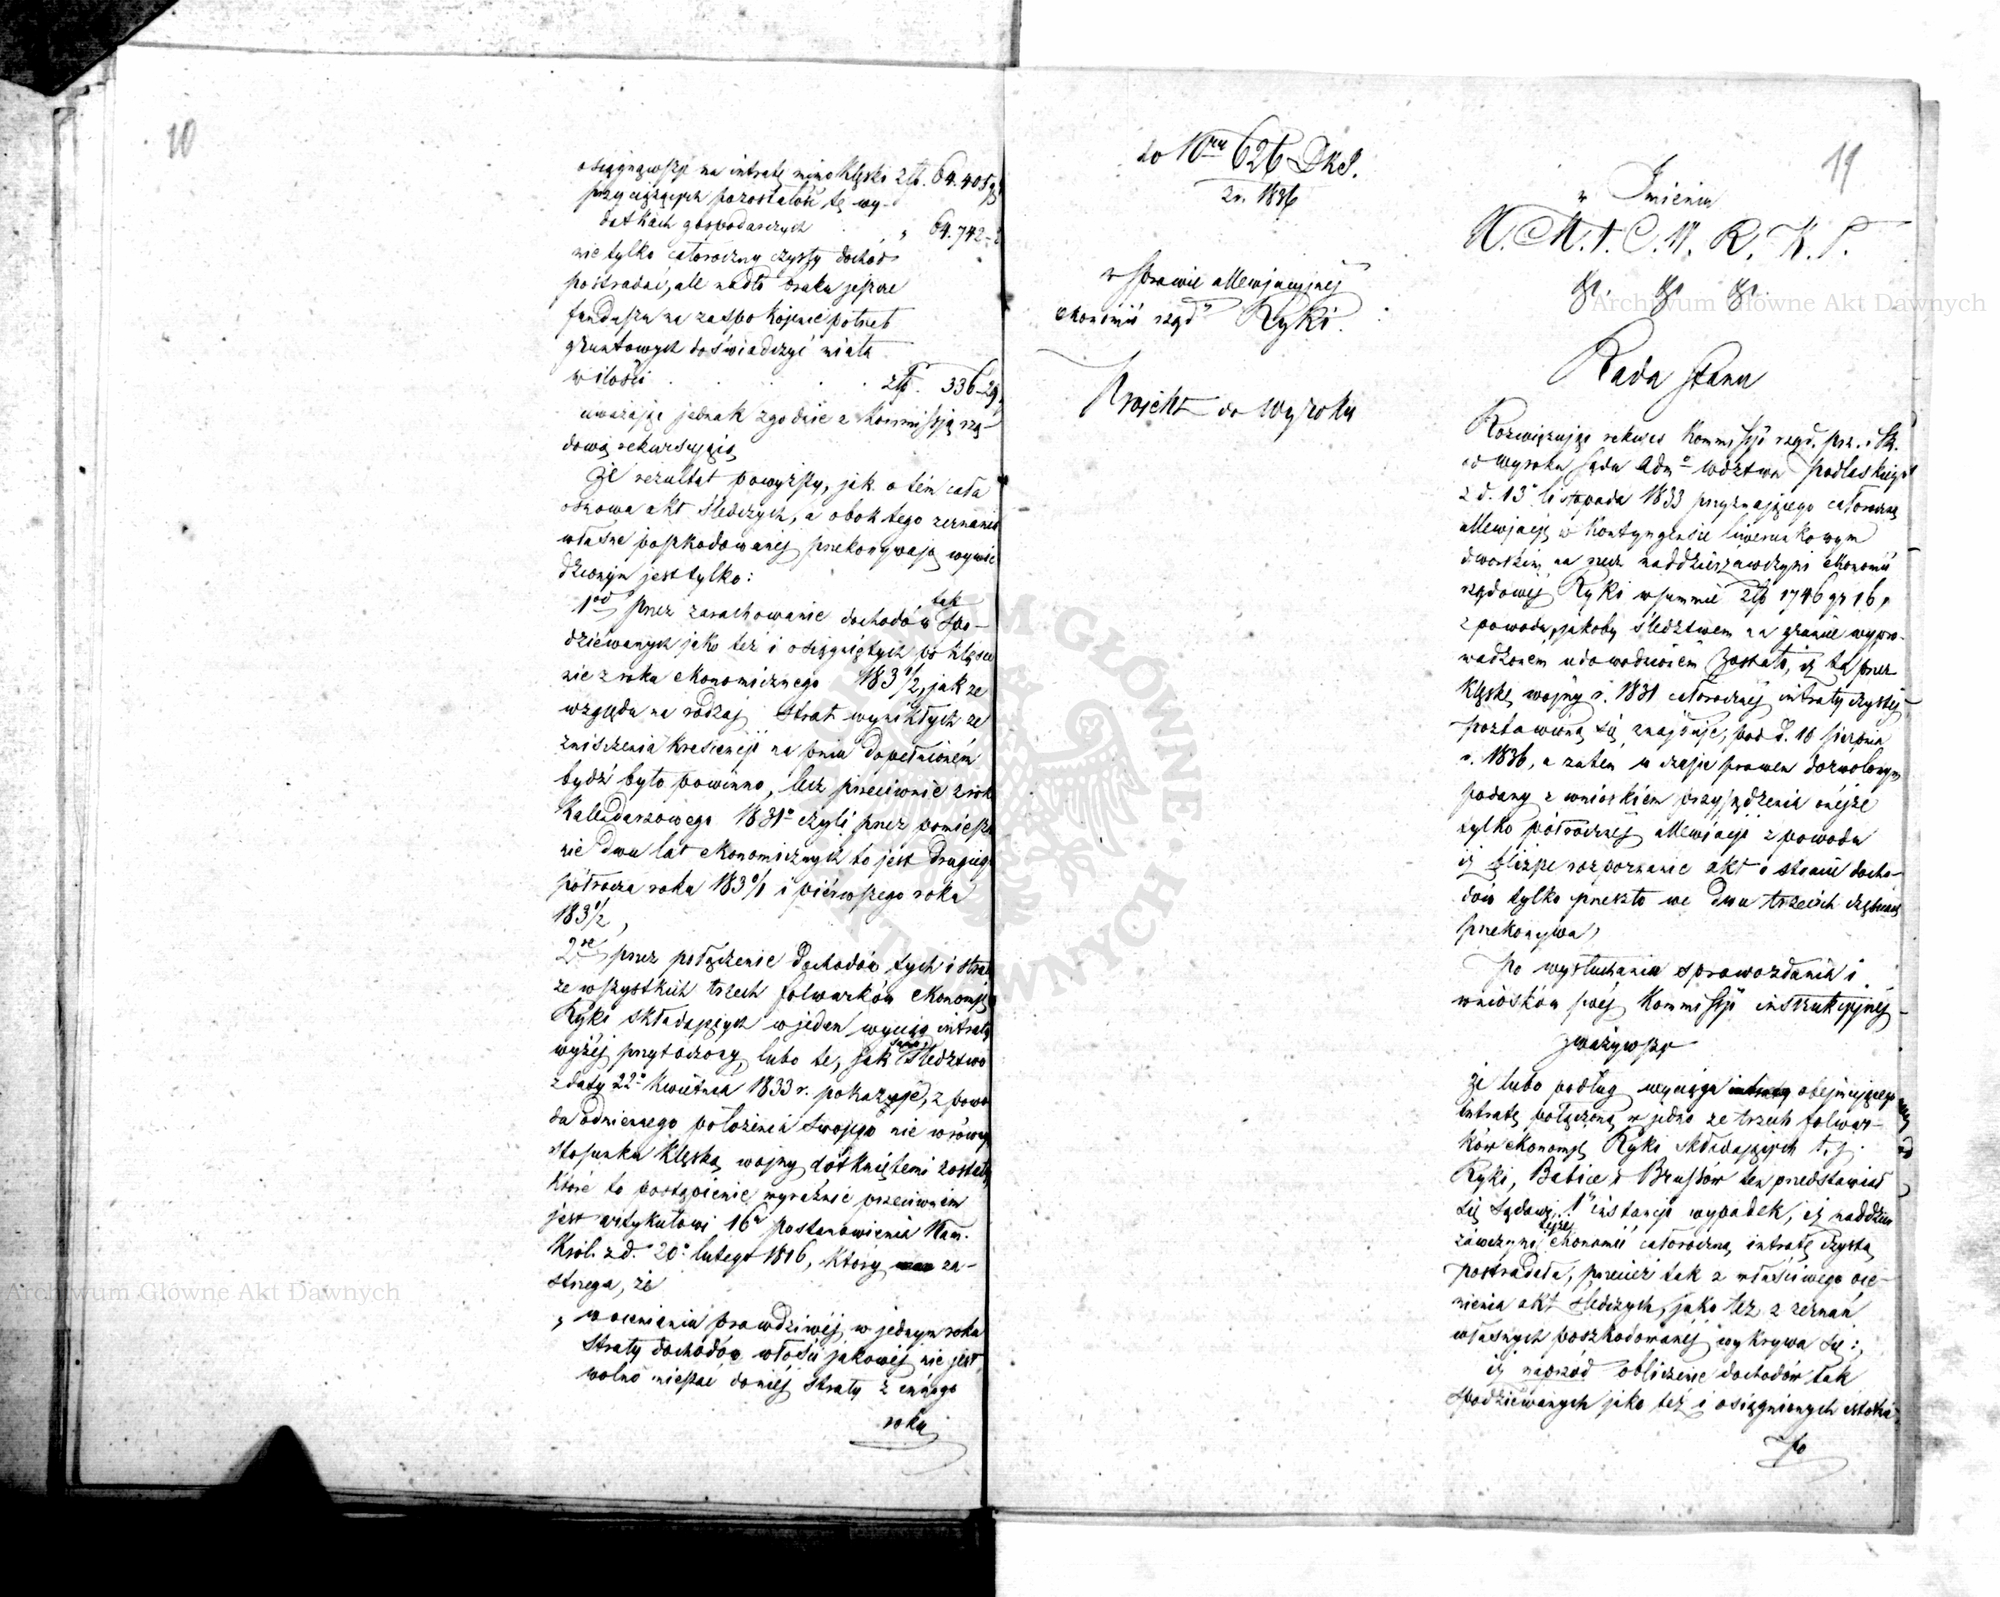 10
osięgnąwszy na intratę mimo klęski złp. 64.405
przyciążających pozostałość tę wy-
datkach gospodarczych " 64.742
nie tylko całoroczny czysty dochód
postradać, ale nadto braku jeszcze
funduszu na zaspokojenie potrzeb
gruntowych doświadczyć miała
w ilości . . . . . złp. 336-29
uważając jednak zgodnie z Kommissją rzą-
dową rekurującą
Że rezultat powyższy, jak o tém cała
osnowa akt śledczych, a obok tego zeznanie
własne poszkodowanej przekonywają wywie-
dzionym jest tylko:
1od przez zarachowanie dochodów tak spo-
dziewanych jako też i osiągniętych po klęsce
nie z roku ekonomicznego 183½, jak ze
względu na rodzaj strat wynikłych ze
zniszczenia krescencji na pniu dopełnioném
bydź było powinno, lecz przeciwnie z roku
Kalendarzowego 1831o czyli przez pomiesza-
nie dwu lat ekonomicznych to jest drugiego
półrocza roku 1830/1 i pierwszego roku
183½,
2re przez połączenie dochodów tych i strat
ze wszystkich trzech folwarków ekonomję
Ryki składających w jeden wyciąg intraty
wyżej przytoczony, lubo te, jak samo śledztwo
z daty 22o Kwietnia 1833 r. pokazuje, z powo-
du odmiennego położenia swojego nie w równym
stosunku klęską wojny dotkniętemi zostały,
które to postąpienie wyraźnie przeciwném
jest artykułowi 16u postanowienia Nam.
Król. z d. 20o lutego 1816, który za-
strzega, że
„ w ocenieniu prawdziwej w jednym roku
straty dochodów włości jakowej nie jest
wolno mieszać do niej straty z innego
roku
do Nru 626 DKS.
z r. 1836
w sprawie allewjacyjnej
ekonomii rząd: Ryki.
Projekt do wyroku
11
w Imieniu
N. M. I. C. W. R. K. P.
& & &
Rada Stanu
Rozwiązując rekurs Kommissji rząd. prz. i Sk.
od wyroku Sądu Admo wdztwa Podlaskiego
z d. 13o listopada 1833 przyznającego całoroczną
allewjację w kontyngensie liwerunkowym
dworskim na rzecz naddzierżawczyni ekonomii
rządowej Ryki w summie złp 1746 gr 16,
z powodu, jakoby śledztwem na gruncie wypro-
wadzoném udowodnioném zostało, iż ta przez
klęskę wojny r. 1831 całorocznej intraty czystej
pozbawioną się znajduje, pod d. 10 sierpnia
r. 1836, a zatem w czasie prawem dozwolonym
podany z wnioskiem przysądzenia onejże
tylko półrocznej allewjacji z powodu
iż bliższe rozpoznanie akt o stracie docho-
dów tylko przeszło we dwu trzecich częściach
przekonywa,
Po wysłuchaniu sprawozdania i
wniosków swej Kommissji instrukcyjnej
zważywszy
Że lubo podług wyciągu obejmującego
intratę połączoną w jedno ze trzech folwar-
ków ekonomję Ryki składających t. j.
Ryki, Babice i Brusów ten przedstawiał
się Sądowi 1ej instancji wypadek, iż naddzier-
żawczyni tejże ekonomii całoroczną intratę czystą
postradała, przecież tak z właściwego oce-
nienia akt śledczych, jako też z zeznań
własnych poszkodowanej wykrywa się:
iż naprzód obliczenie dochodów tak
spodziewanych jako też i osiągnionych